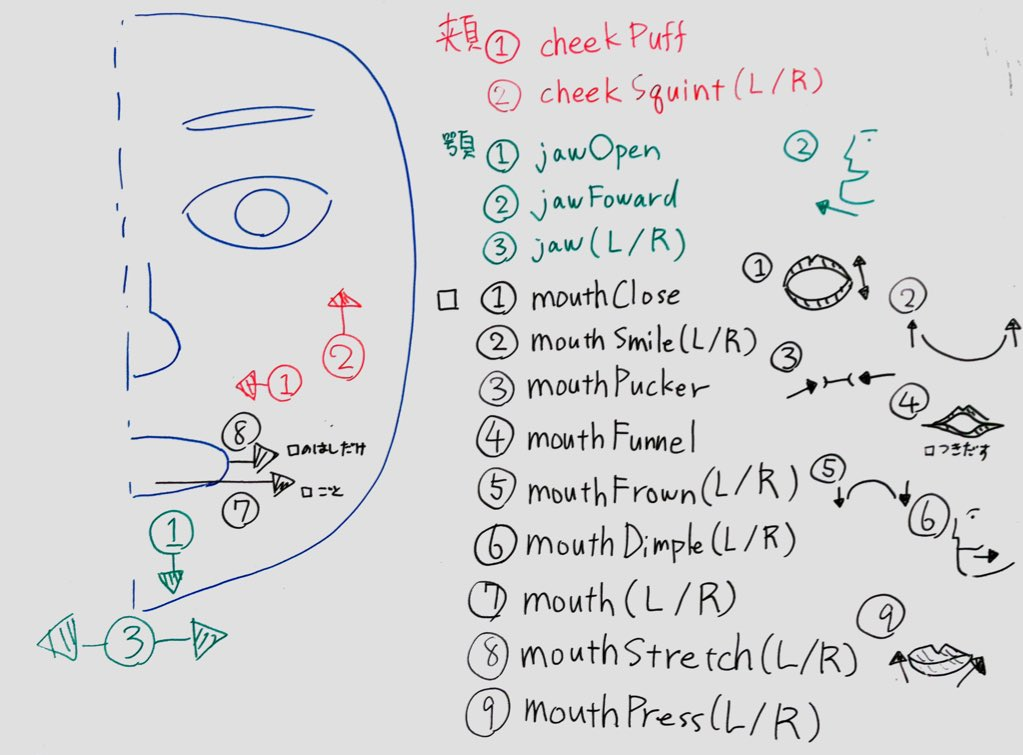 頬 ① cheekPuff
② cheekSquint(L/R)
顎 ① jawOpen
② jawFoward
③ jaw(L/R)
口 ① mouthClose
② mouthSmile(L/R)
③ mouthPucker
④ mouthFunnel
⑤ mouthFrown(L/R)
⑥ mouthDimple(L/R)
⑦ mouth(L/R)
⑧ mouthStretch(L/R)
⑨ mouthPress(L/R)
②
①
②
③
④
口つきだす
⑤
⑥
⑨
②
①
⑧
口のはしだけ
口ごと
⑦
①
③